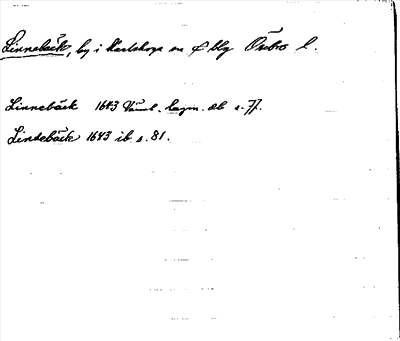 Linnebäck, by i Karlskoga sn o blg Örebro l.
Linnebäck 1643 Värml. lagm. db s. 77.
Lindebäck 1643 ib. s. 81.